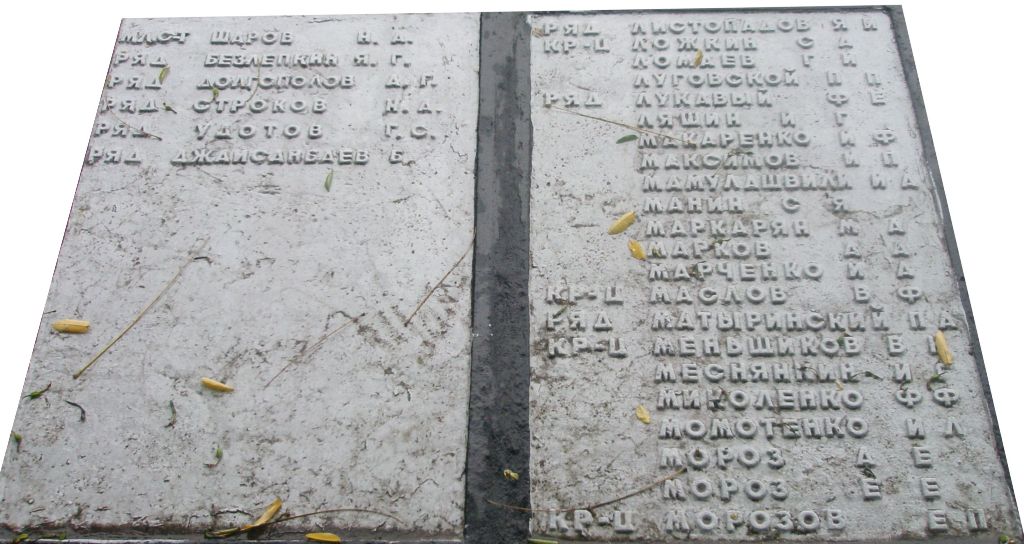 МЛ.С-Т ШАРОВ Н. А.
РЯД БЕЗЛЕПКИН Я. Г.
РЯД ДОЛГОПОЛОВ А. Г.
РЯД СТРОКОВ Н. А.
РЯД УДОТОВ Г. С.
РЯД ДЖАЙСАНБАЕВ Б.
РЯД ЛИСТОПАДОВ Я И
КР-Ц ЛОЖКИН С Д
ЛОМАЕВ Г И
ЛУГОВСКОЙ П П
РЯД ЛУКАВЫЙ Ф Е
ЛЯШИН И Г
МАКАРЕНКО И Ф
МАКСИМОВ И П
МАМУЛАШВИЛИ И А
МАНИН С Я
МАРКАРЯН М А
МАРКОВ А А
МАРЧЕНКО И А
КР-Ц МАСЛОВ В Ф
РЯД МАТЫРИНСКИЙ П Д
КР-Ц МЕНЬЩИКОВ В
МЕСНЯНКИН И
МИКОЛЕНКО Ф Ф
МОМОТЕНКО И Л
МОРОЗ А Е
МОРОЗ Е Е
КР-Ц МОРОЗОВ Е П